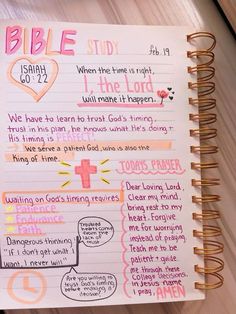 BIBLE STUDY feb. 19
ISAIAH
60:22
When the time is right,
I, the Lord
will make it happen.
We have to learn to trust God's timing,
trust in his plan, he knows what He's doing.
His timing is PERFECT!
We serve a patient GOD, who is also the
King of time.
TODAYS PRAYER
Waiting on God's timing requires
Patience
Endurance
Faith
Dangerous thinking:
"IF I don't get what I
want, I never will"
troubled
hearts come
from the
lack of
trust
Are you willing to
trust God's timing
before making a
decision?
Dear Loving Lord,
Clear my mind,
bring rest to my
heart. Forgive
me for worrying
instead of praying.
Teach me to be
patient & guide
me through these
College decisions.
In Jesus name
I pray, AMEN